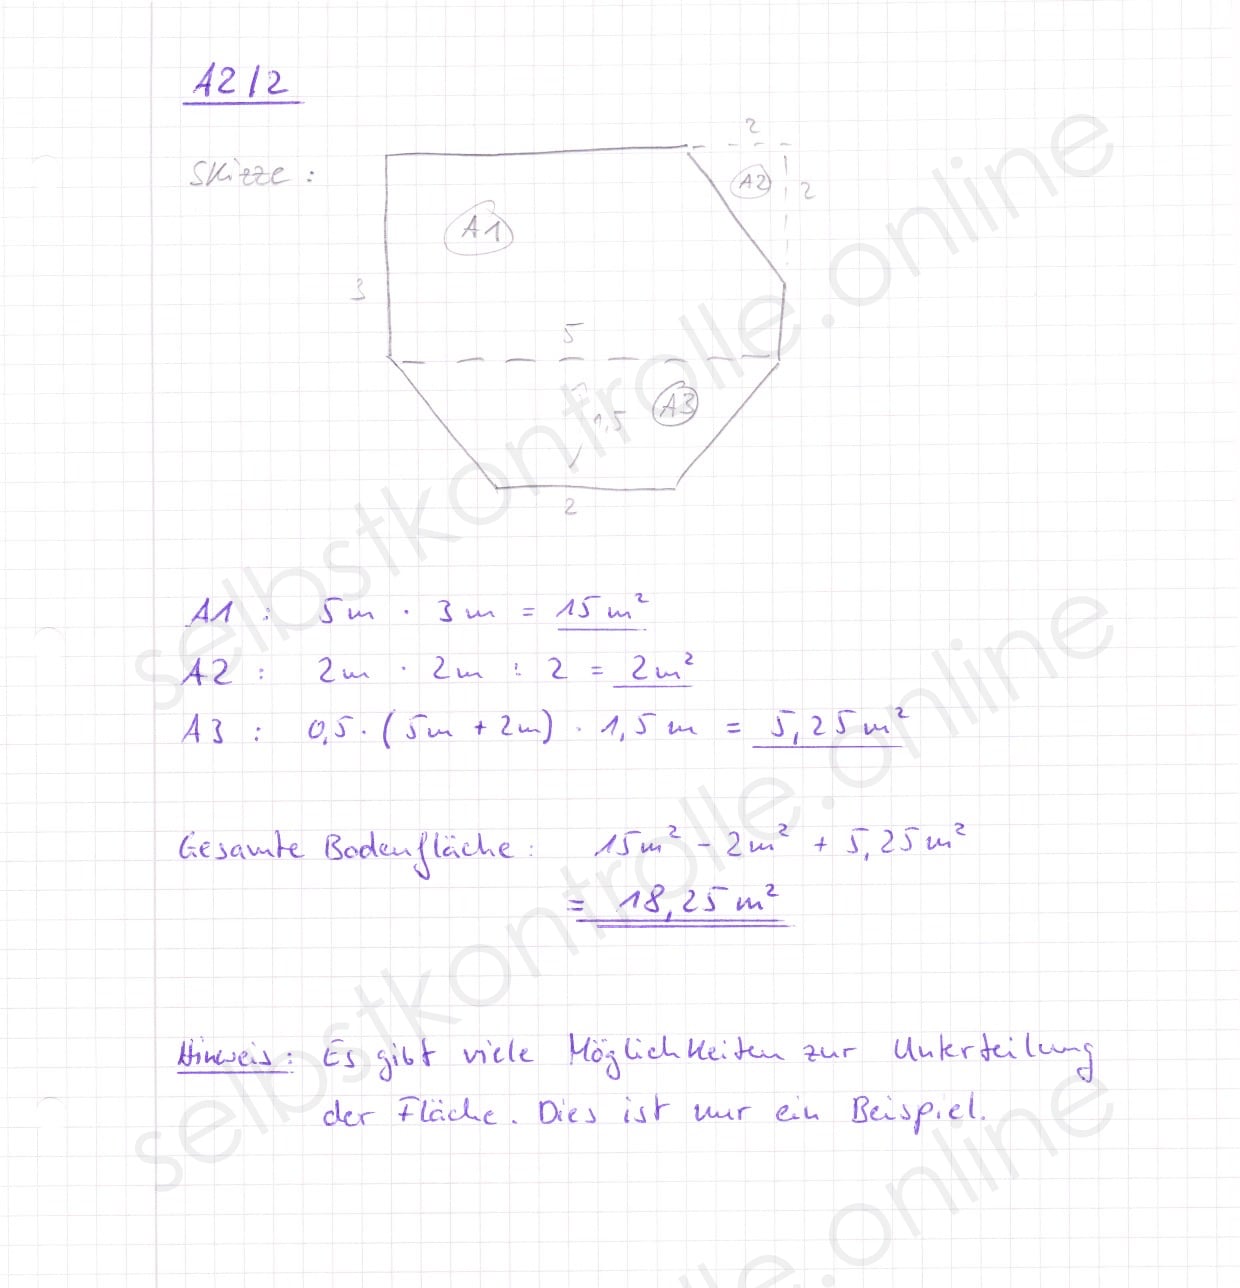 A2/2
Skizze:
2
A2
2
A1
3
5
1,5
A3
2
A1 : 5m · 3m = 15m²
A2 : 2m · 2m : 2 = 2m²
A3 : 0,5 · (5m + 2m) · 1,5m = 5,25m²
Gesamte Bodenfläche: 15m² - 2m² + 5,25m²
= 18,25m²
Hinweis: Es gibt viele Möglichkeiten zur Unterteilung
der Fläche. Dies ist nur ein Beispiel.
selbstkontrolle.online
selbstkontrolle.online
selbstkontrolle.online